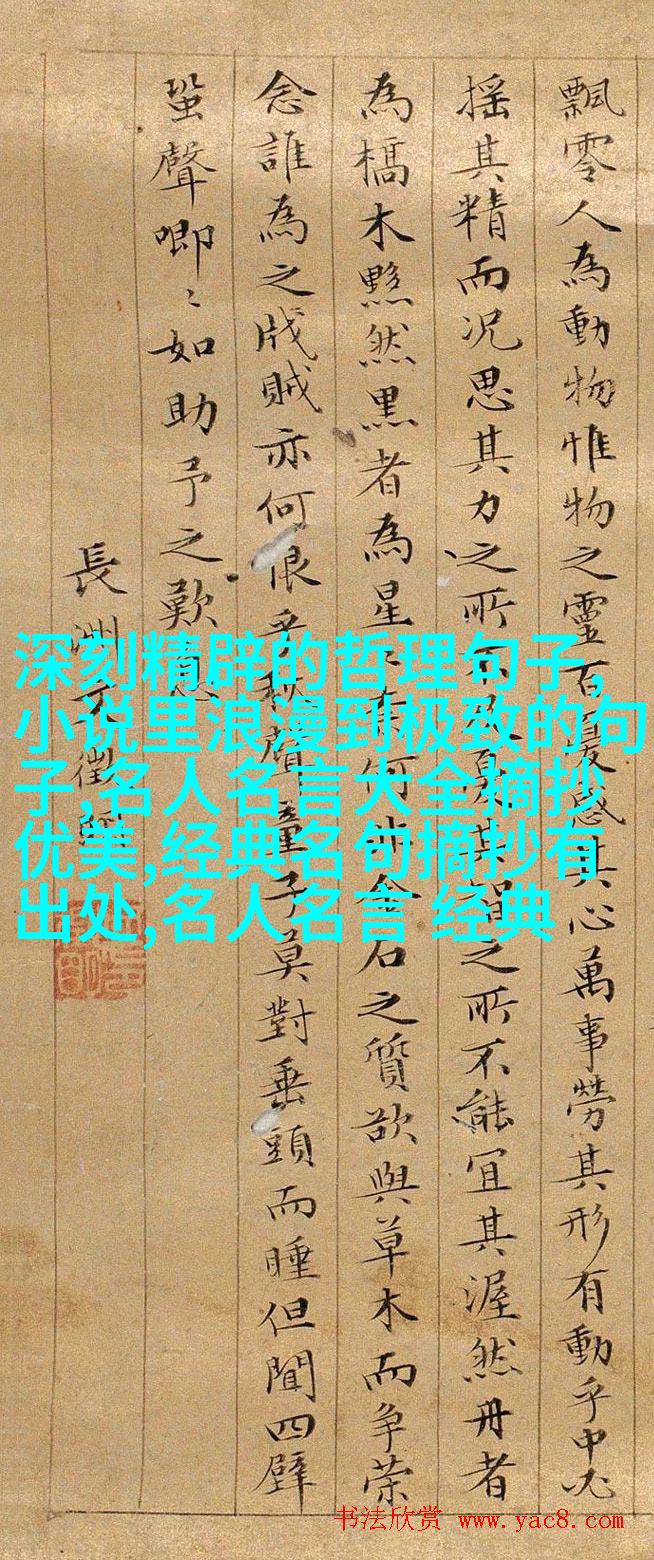 飄零人為動物惟物之靈百憂感其心萬事勞其形有動乎中必
摇其精而况思其力之所不及憂其智之所不能宜其渥然丹者
為槁木黟然黒者為星〻奈何非金石之質欲與草木而争荣
念誰為之戕賊亦何恨乎秋聲童子莫對垂頭而睡但聞四壁
蛩聲唧〻如助予之歎息
長洲文徵明
深刻精辟的哲理句子,
小说里浪漫到极致的句
子,名人名言大全摘抄
优美,经典名句摘抄有
出处,名人名言 经典
书法欣赏 www.yac8.com